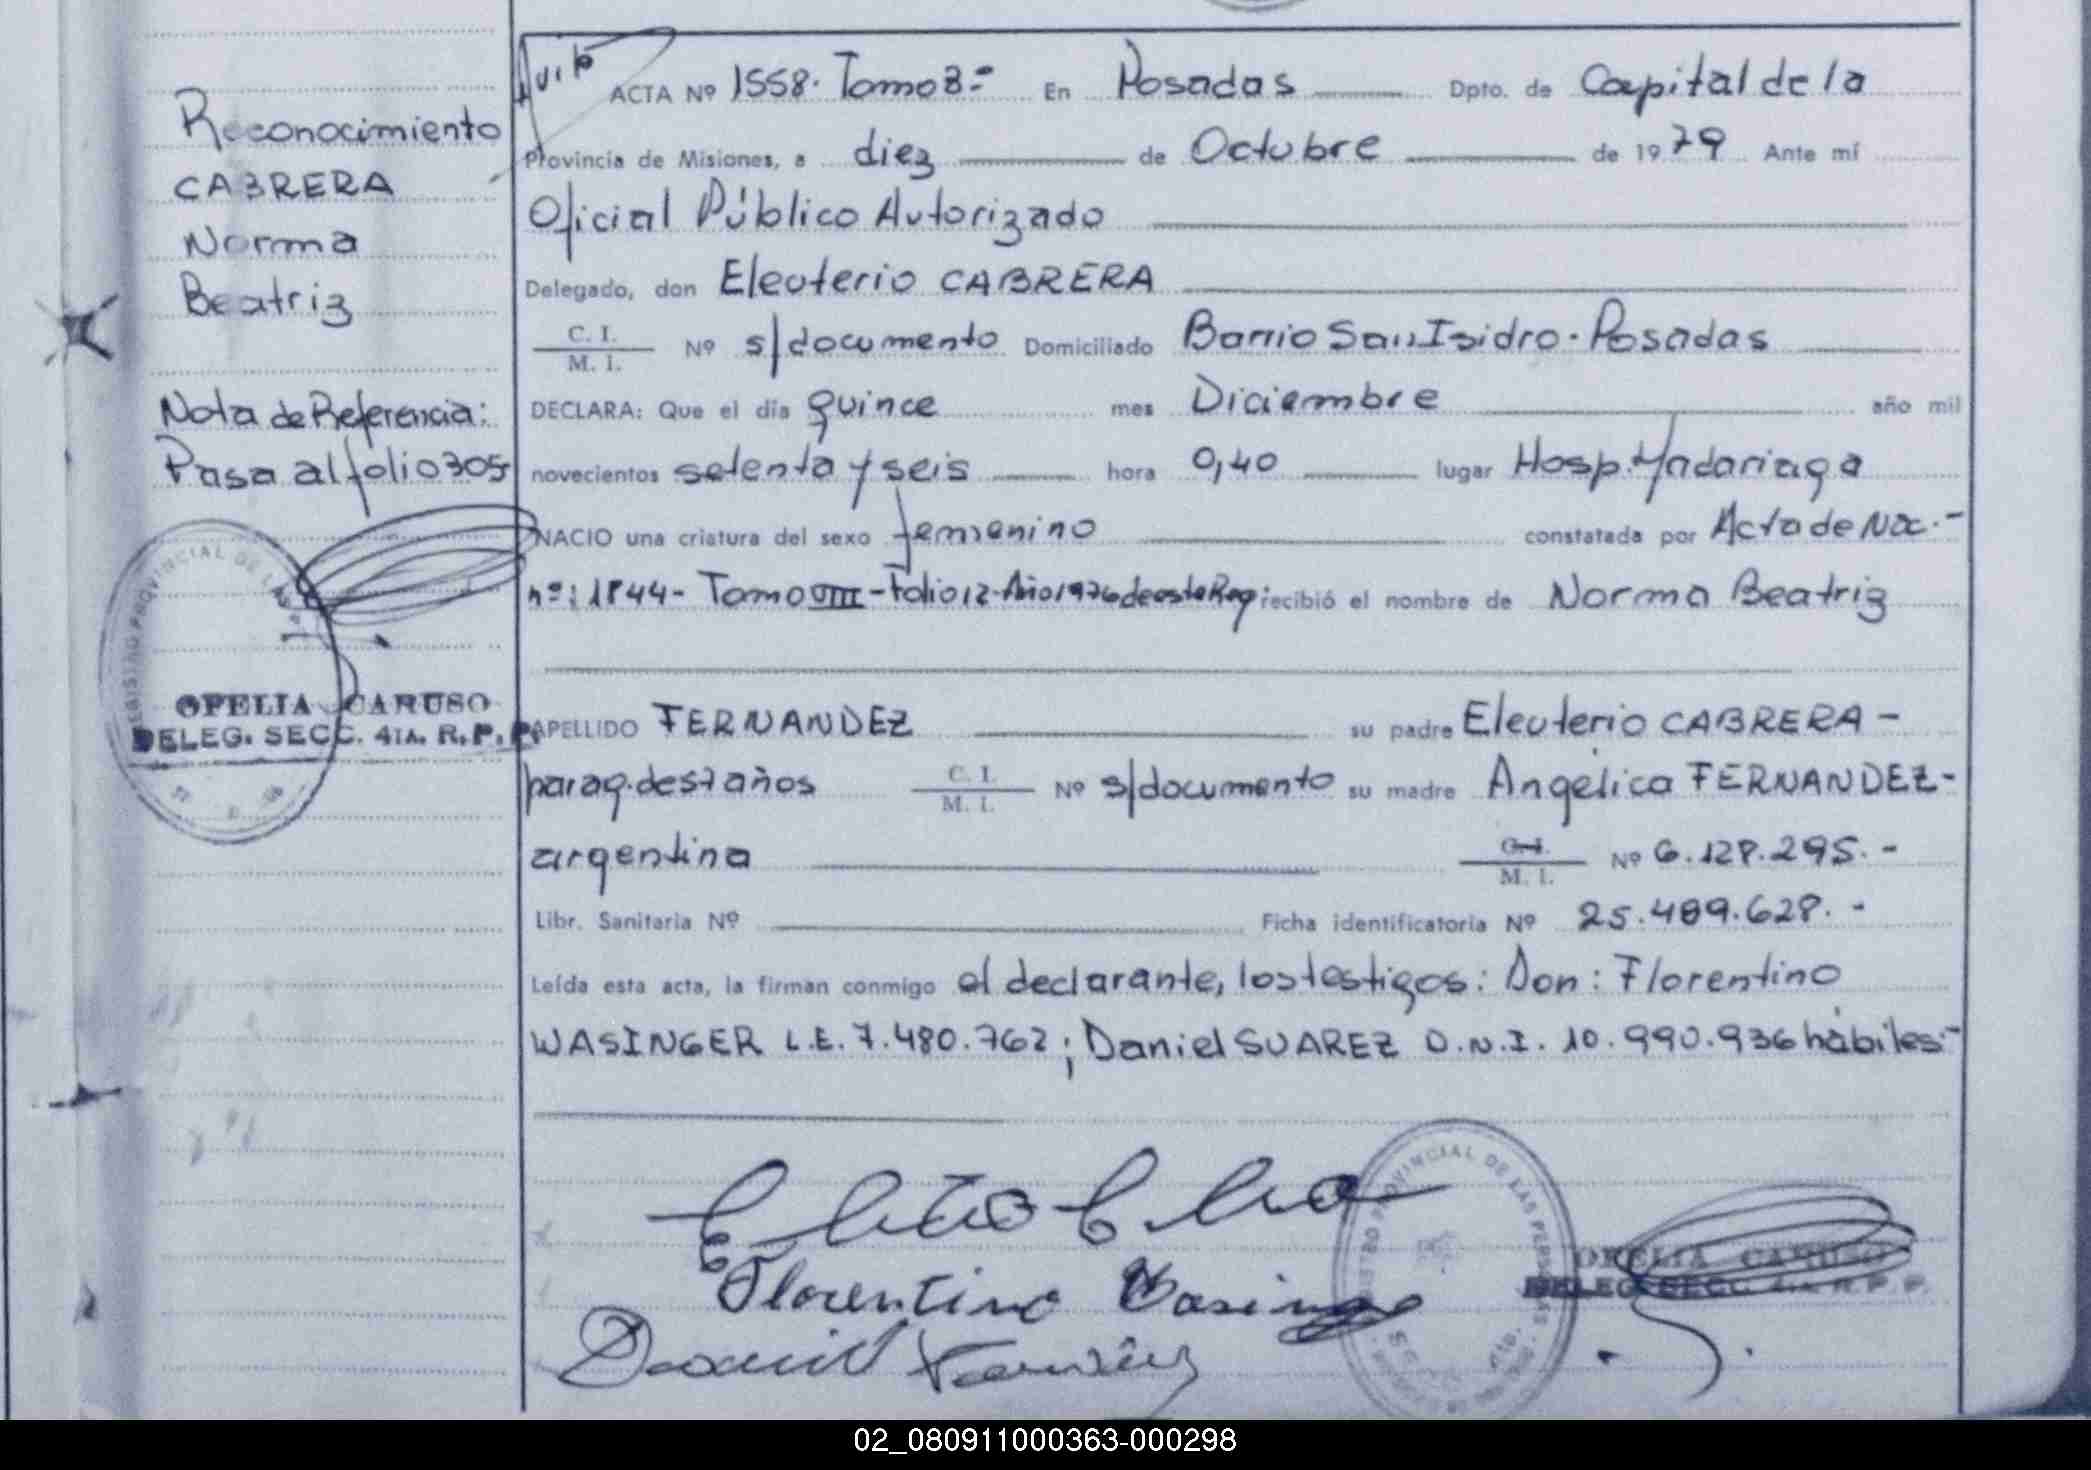 Reconocimiento
CABRERA
Norma
Beatriz
Nota de Referencia:
Pasa al folio 305
REGISTRO PROVINCIAL DE LAS
OFELIA CARUSO
DELEG. SECC. 4TA. R. P. P.
ACTA Nº 1558. Tomo 3.= En Posadas Dpto. de Capital de la
Provincia de Misiones, a diez de Octubre de 1979 Ante mí
Oficial Público Autorizado
Delegado, don Eleuterio CABRERA
C. I. / M. I. Nº s/documento Domiciliado Barrio San Isidro - Posadas
DECLARA: Que el día quince mes Diciembre año mil
novecientos setenta y seis hora 0,40 lugar Hosp. Madariaga
NACIO una criatura del sexo femenino constatada por Acta de Nac.-
nº: 1844- Tomo VIII - Folio 12- Año 1976 de este Reg recibió el nombre de Norma Beatriz
APELLIDO FERNANDEZ su padre Eleuterio CABRERA -
parag. de 57 años C. I. / M. I. Nº s/documento su madre Angélica FERNANDEZ-
argentina C. I. / M. I. Nº 6.128.295.-
Libr. Sanitaria Nº Ficha identificatoria Nº 25.489.628.-
Leída esta acta, la firman conmigo el declarante, los testigos: Don: Florentino
WASINGER L.E. 7.480.762; Daniel SUAREZ D.N.I. 10.990.936 hábiles.-
REGISTRO PROVINCIAL DE LAS PERSONAS
Florentino Wasinger
OFELIA CARUSO
DELEG. SECC. 4TA R. P. P.
02_080911000363-000298